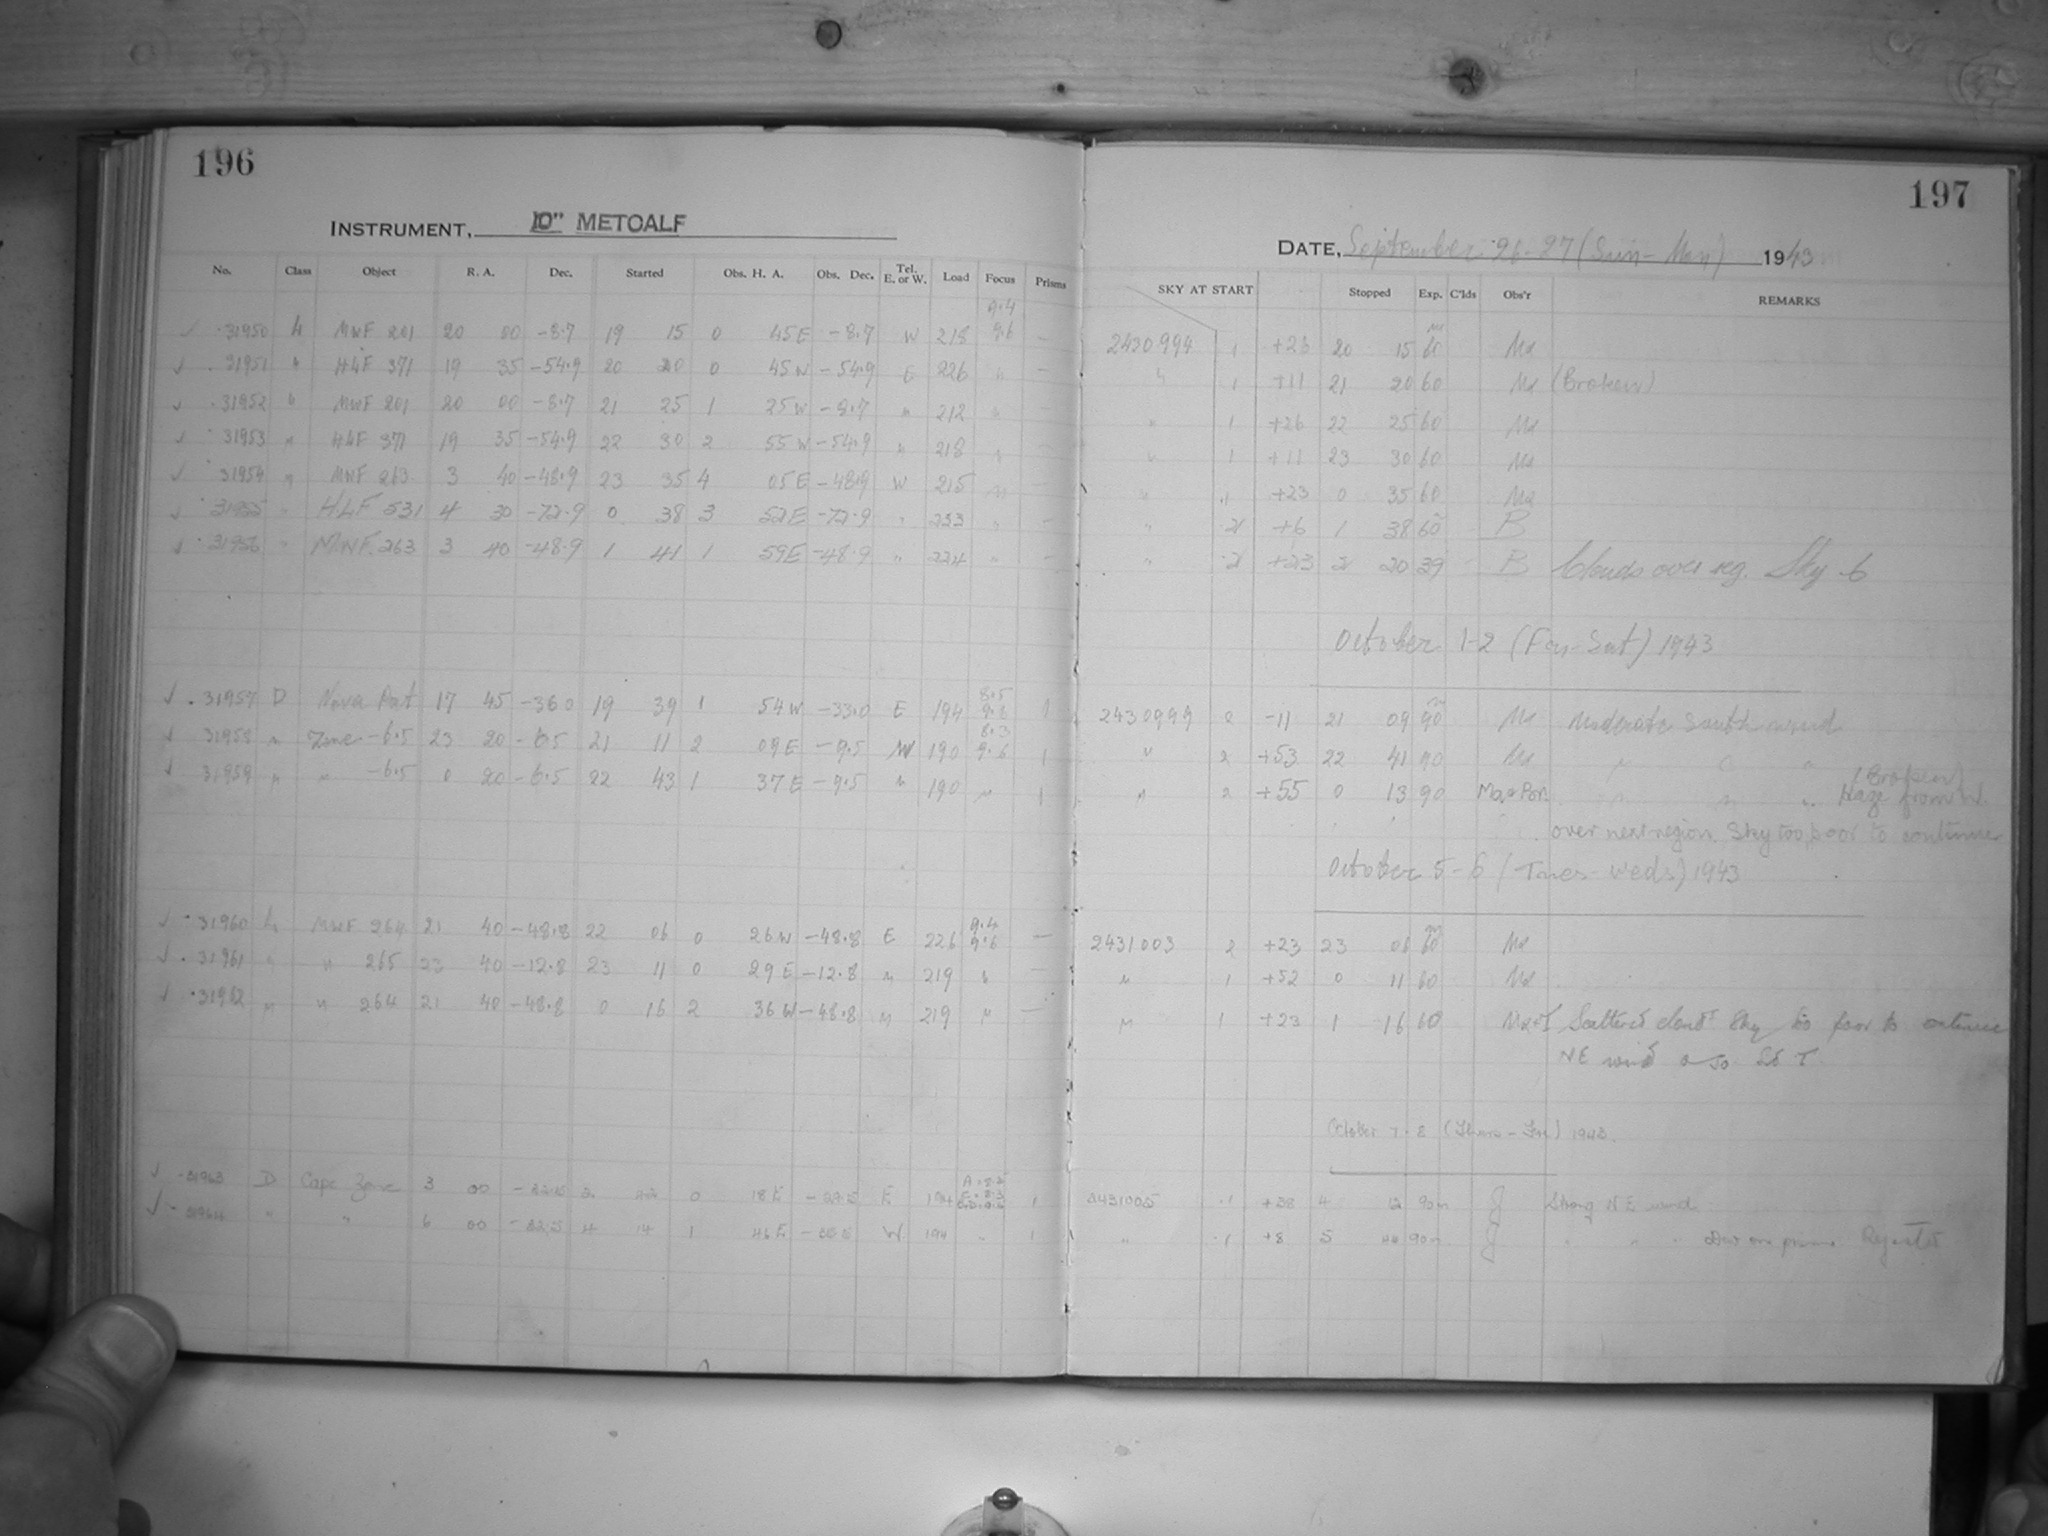 196
INSTRUMENT, 10" METCALF
No. Class Object R. A. Dec. Started Obs. H. A. Obs. Dec. Tel. E. or W. Load Focus Prisms
31950 MWF 201 20 00 -8.7 19 15 0 45 E -8.7 W 218 9.4 9.6 —
31951 " HLF 371 19 35 -54.9 20 20 0 45 W -54.9 E 226 " —
31952 " MWF 201 20 00 -8.7 21 25 1 25 W -8.7 " 212 " —
31953 " HLF 371 19 35 -54.9 22 30 2 55 W -54.9 " 218 " —
31954 " MWF 263 3 40 -48.9 23 35 4 05 E -48.9 W 215 "
31955 " HLF 531 4 30 -72.9 0 38 3 52 E -72.9 " 233 " —
31956 " MWF 263 3 40 -48.9 1 41 1 59 E -48.9 " 224 " —
31957 D Nova 17 45 -36.0 19 39 1 54 W -33.0 E 194 8.5 1
31958 " Zone -6.5 23 20 -6.5 21 11 2 09 E -9.5 W 190 8.3 9.6 1
31959 " " -6.5 0 20 -6.5 22 43 1 37 E -9.5 " 190 " 1
31960 MWF 264 21 40 -48.8 22 06 0 26 W -48.8 E 226 9.4 9.6 —
31961 " " 265 23 40 -12.8 23 11 0 29 E -12.8 " 219 " —
31962 " " 264 21 40 -48.8 0 16 2 36 W -48.8 " 219 " —
31963 D Cape Zone 3 00 0 18 E E 194 1
31964 " " 6 00 4 14 1 46 E W 194 " 1
197
DATE, September 26-27 (Sun-Mon) 1943
SKY AT START Stopped Exp. C'lds Obs'r REMARKS
2430994 1 +26 20 15 60 Ma
" 1 +11 21 20 60 Ma (Broken)
" 1 +26 22 25 60 Ma
" 1 +11 23 30 60 Ma
" " +23 0 35 60 Ma
" 2 +6 1 38 60 B
" 2 +23 2 20 39 B Clouds over reg. Sky 6
October 1-2 (Fri-Sat) 1943
2430999 2 -11 21 09 90 Ma Moderate South wind
" 2 +53 22 41 90 Ma " " "
" 2 +55 0 13 90 Ma & Par. " " " (Broken) Haze from W.
over next region. Sky too poor to continue
October 5-6 (Tues-Weds) 1943
2431003 2 +23 23 06 60 Ma
" 1 +52 0 11 60 Ma
" 1 +23 1 16 60 Scattered clouds Sky too poor to continue
NE wind
October 7-8 (Thurs-Fri) 1943.
2431005 1 +38 4 12 90m J Strong NE wind
" 1 +8 5 44 90m J " " " Dew on prisms Rejected